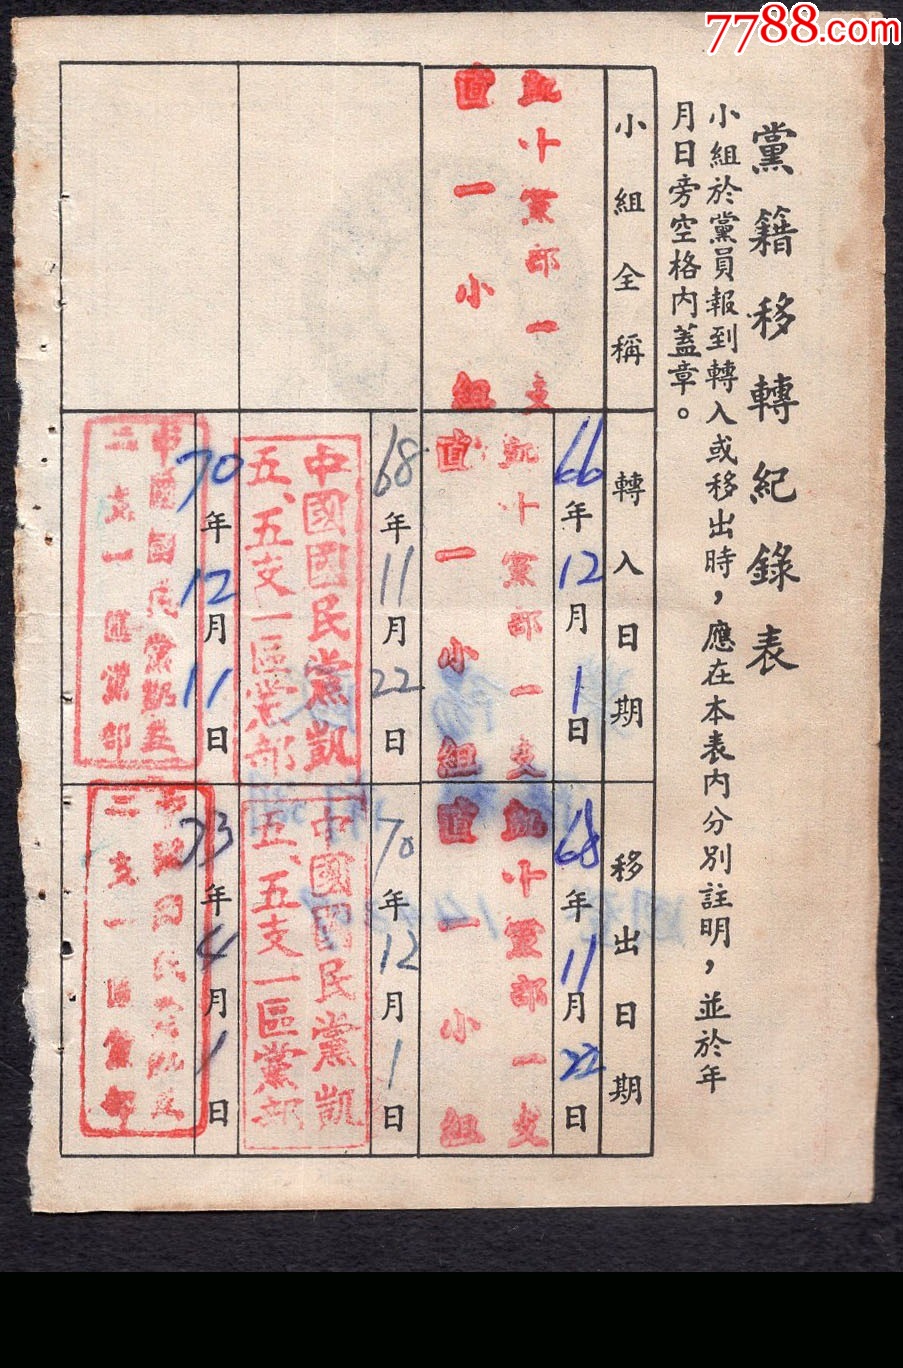 7788.com
黨籍移轉紀錄表
小組於黨員報到轉入或移出時，應在本表內分別註明，並於年
月日旁空格內蓋章。
小組全稱
轉入日期
移出日期
凱十黨部一支
直一小組
66年12月1日
凱十黨部一支
直一小組
68年11月22日
凱十黨部一支
直一小組
68年11月22日
中國國民黨凱
五、五支一區党部
70年12月1日
中國國民黨凱
五、五支一區黨部
70年12月11日
中國國民黨凱五
二支一區黨部
73年4月1日
中國國民黨凱五
二支一區黨部